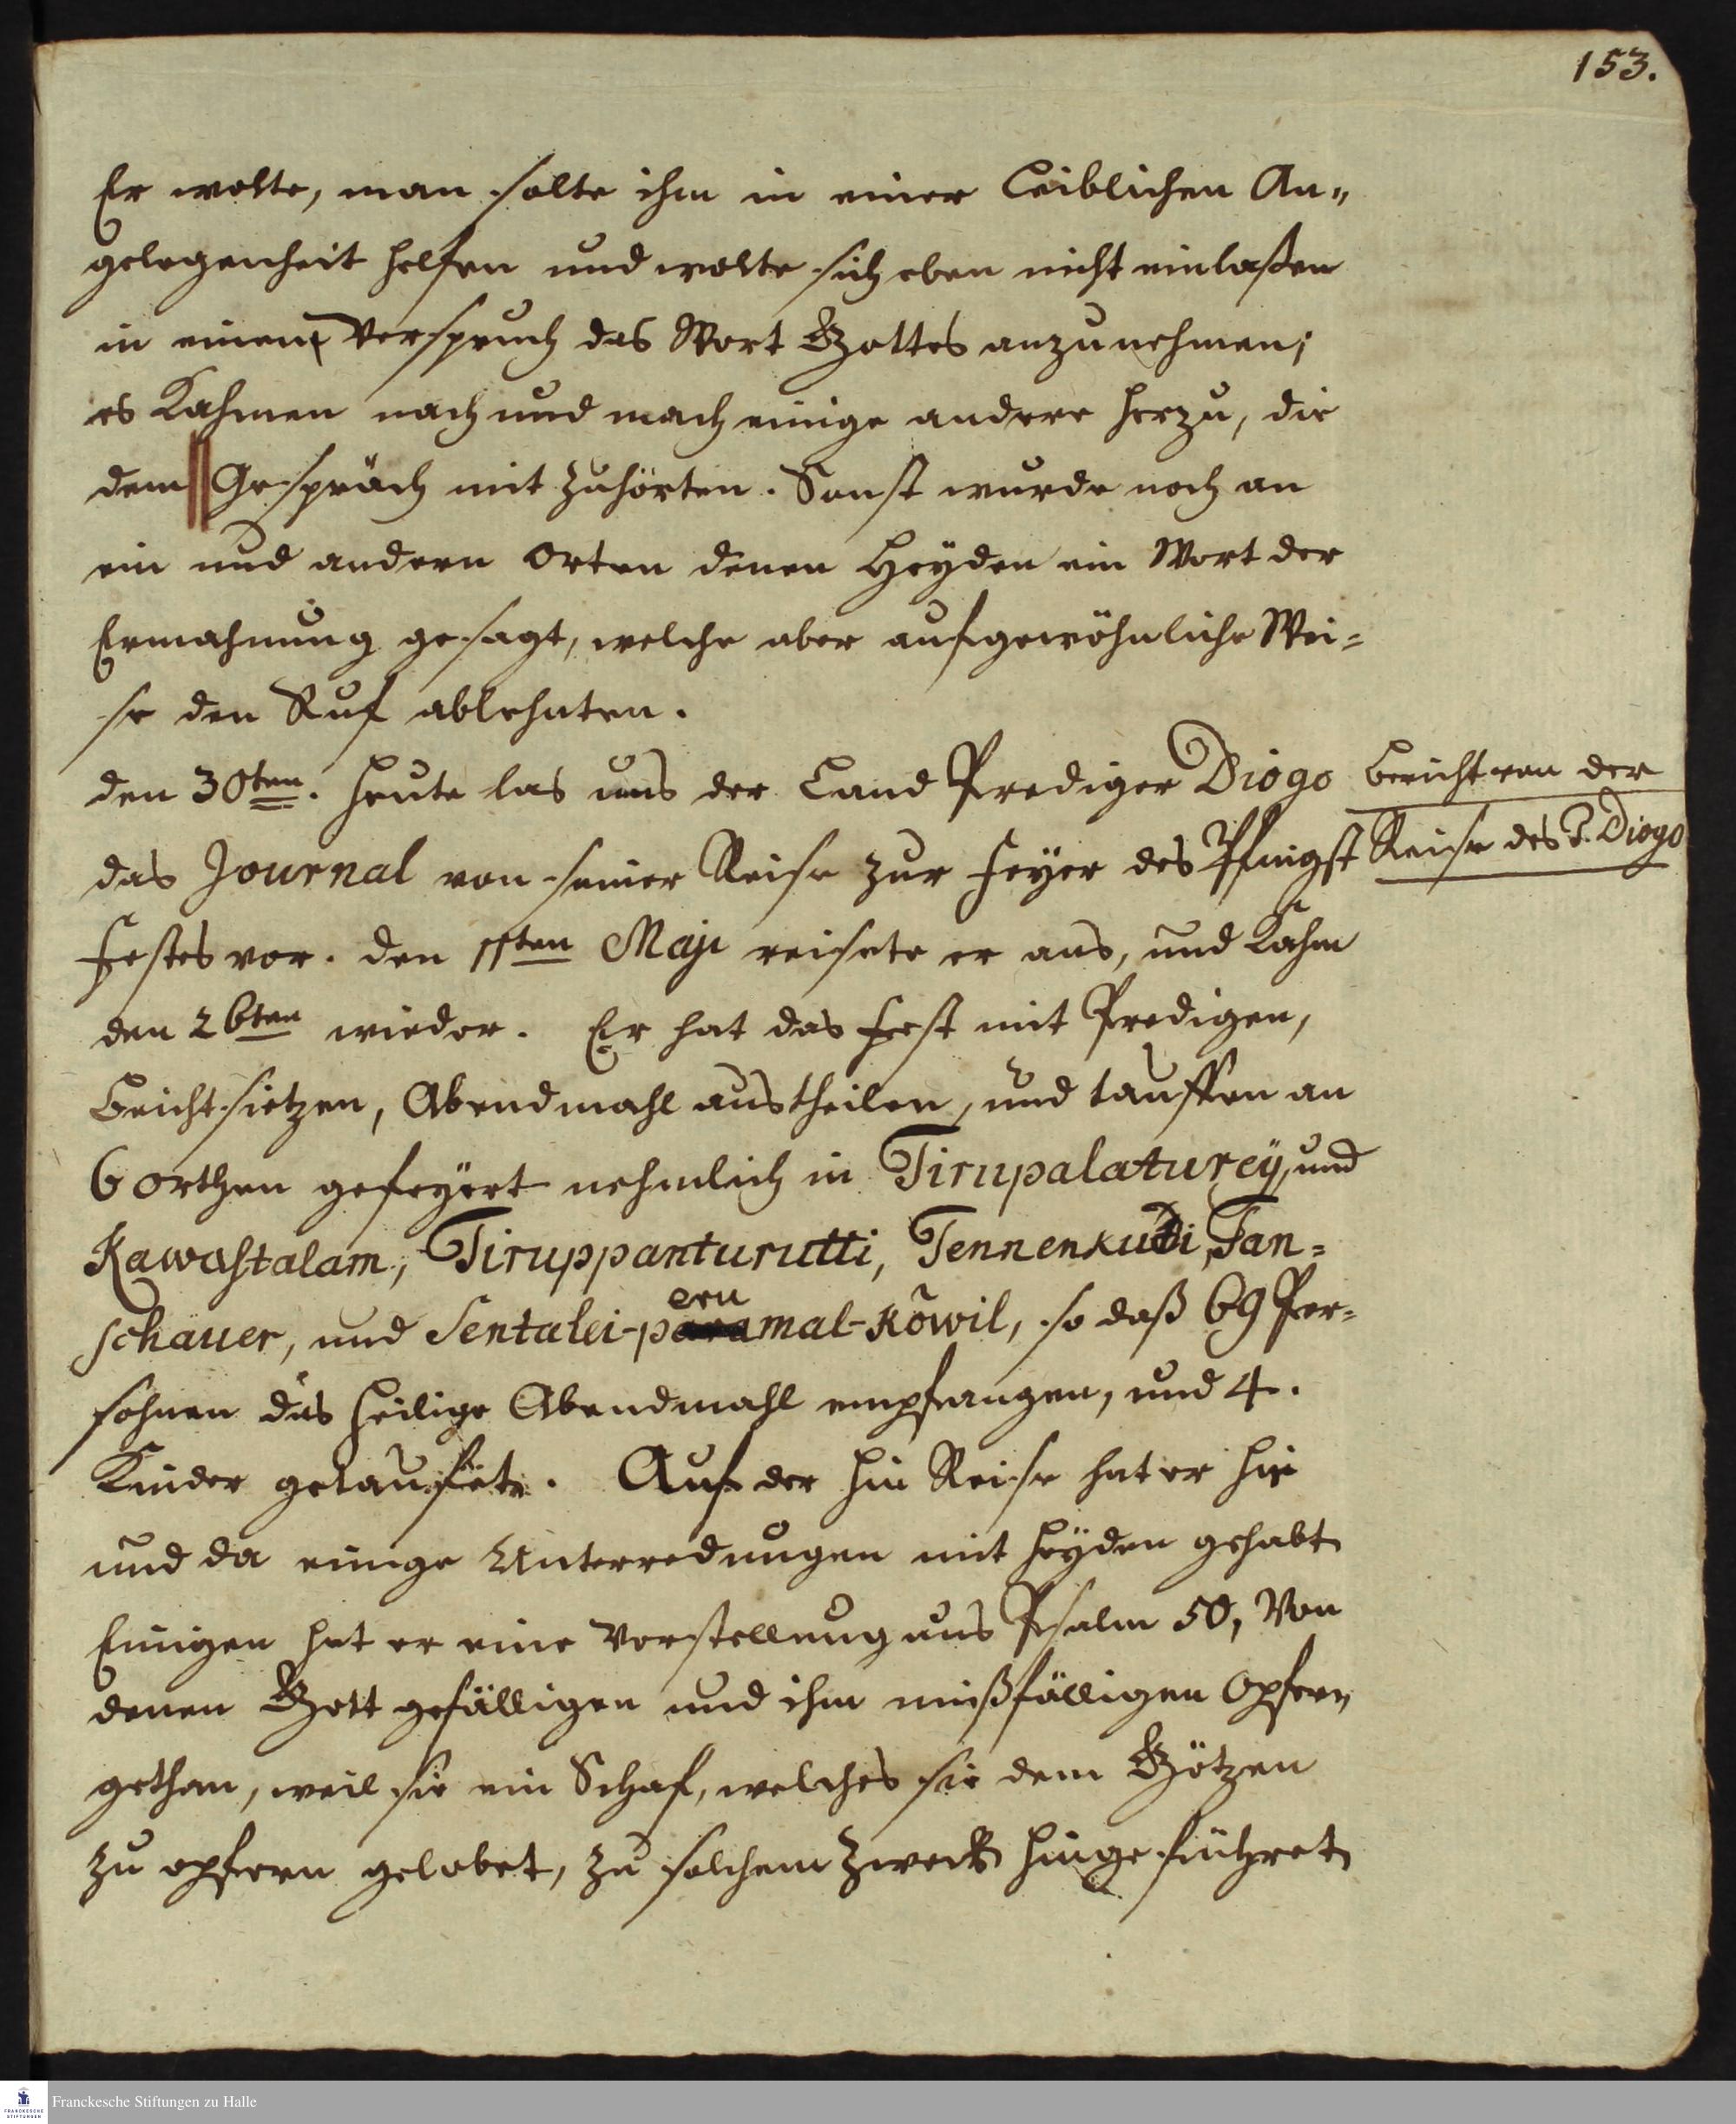 153.
Er wolte, man solte ihm in einer Leiblichen An„
gelegenheit helfen und wolte sich eben nicht einlaßen
in einem Verspruch das Wort Gottes anzunehmen;
es kahmen nach und nach einige andere herzu, die
dem Gespräch mit zuhörten. Sonst wurde noch an
ein und andern Orten denen Heyden ein Wort der
Ermahnung gesagt, welche aber auf gewöhnliche Wei=
se den Ruf ablehnten.
den 30ten. Heute las uns der Land Prediger Diogo
Bericht von der
das Journal von seiner Reise zur Feyer des Pfingst
Reise des P. Diogo
Festes vor. den 11ten Maji reisete er aus, und kahm
den 26ten wieder. Er hat das Fest mit Predigen,
Beichtsietzen, Abendmahl austheilen, und tauffen an
6 Orthen gefeyert nehmlich in Tirupalaturey, und
Kawastalam, Tiruppanturutti, Tennenkudi, Tan=
schauer, und Sentalei-perumal-Kõwil, so daß 69 Per=
sohnen das Heilige Abendmahl empfangen, und 4.
Kinder getaufet. Auf der Hin Reise hat er hie
und da einige Unterredungen mit Heyden gehabt
Einigen hat er eine Vorstellung aus Psalm 50, Von
denen Gott gefälligen und ihm mißfälligen Opfern
gethan, weil sie ein Schaf, welches sie dem Götzen
zu opfern gelobet, zu solchem Zweck hingeführet
Franckesche Stiftungen zu Halle
FRANCKESCHE
STIFTUNGEN